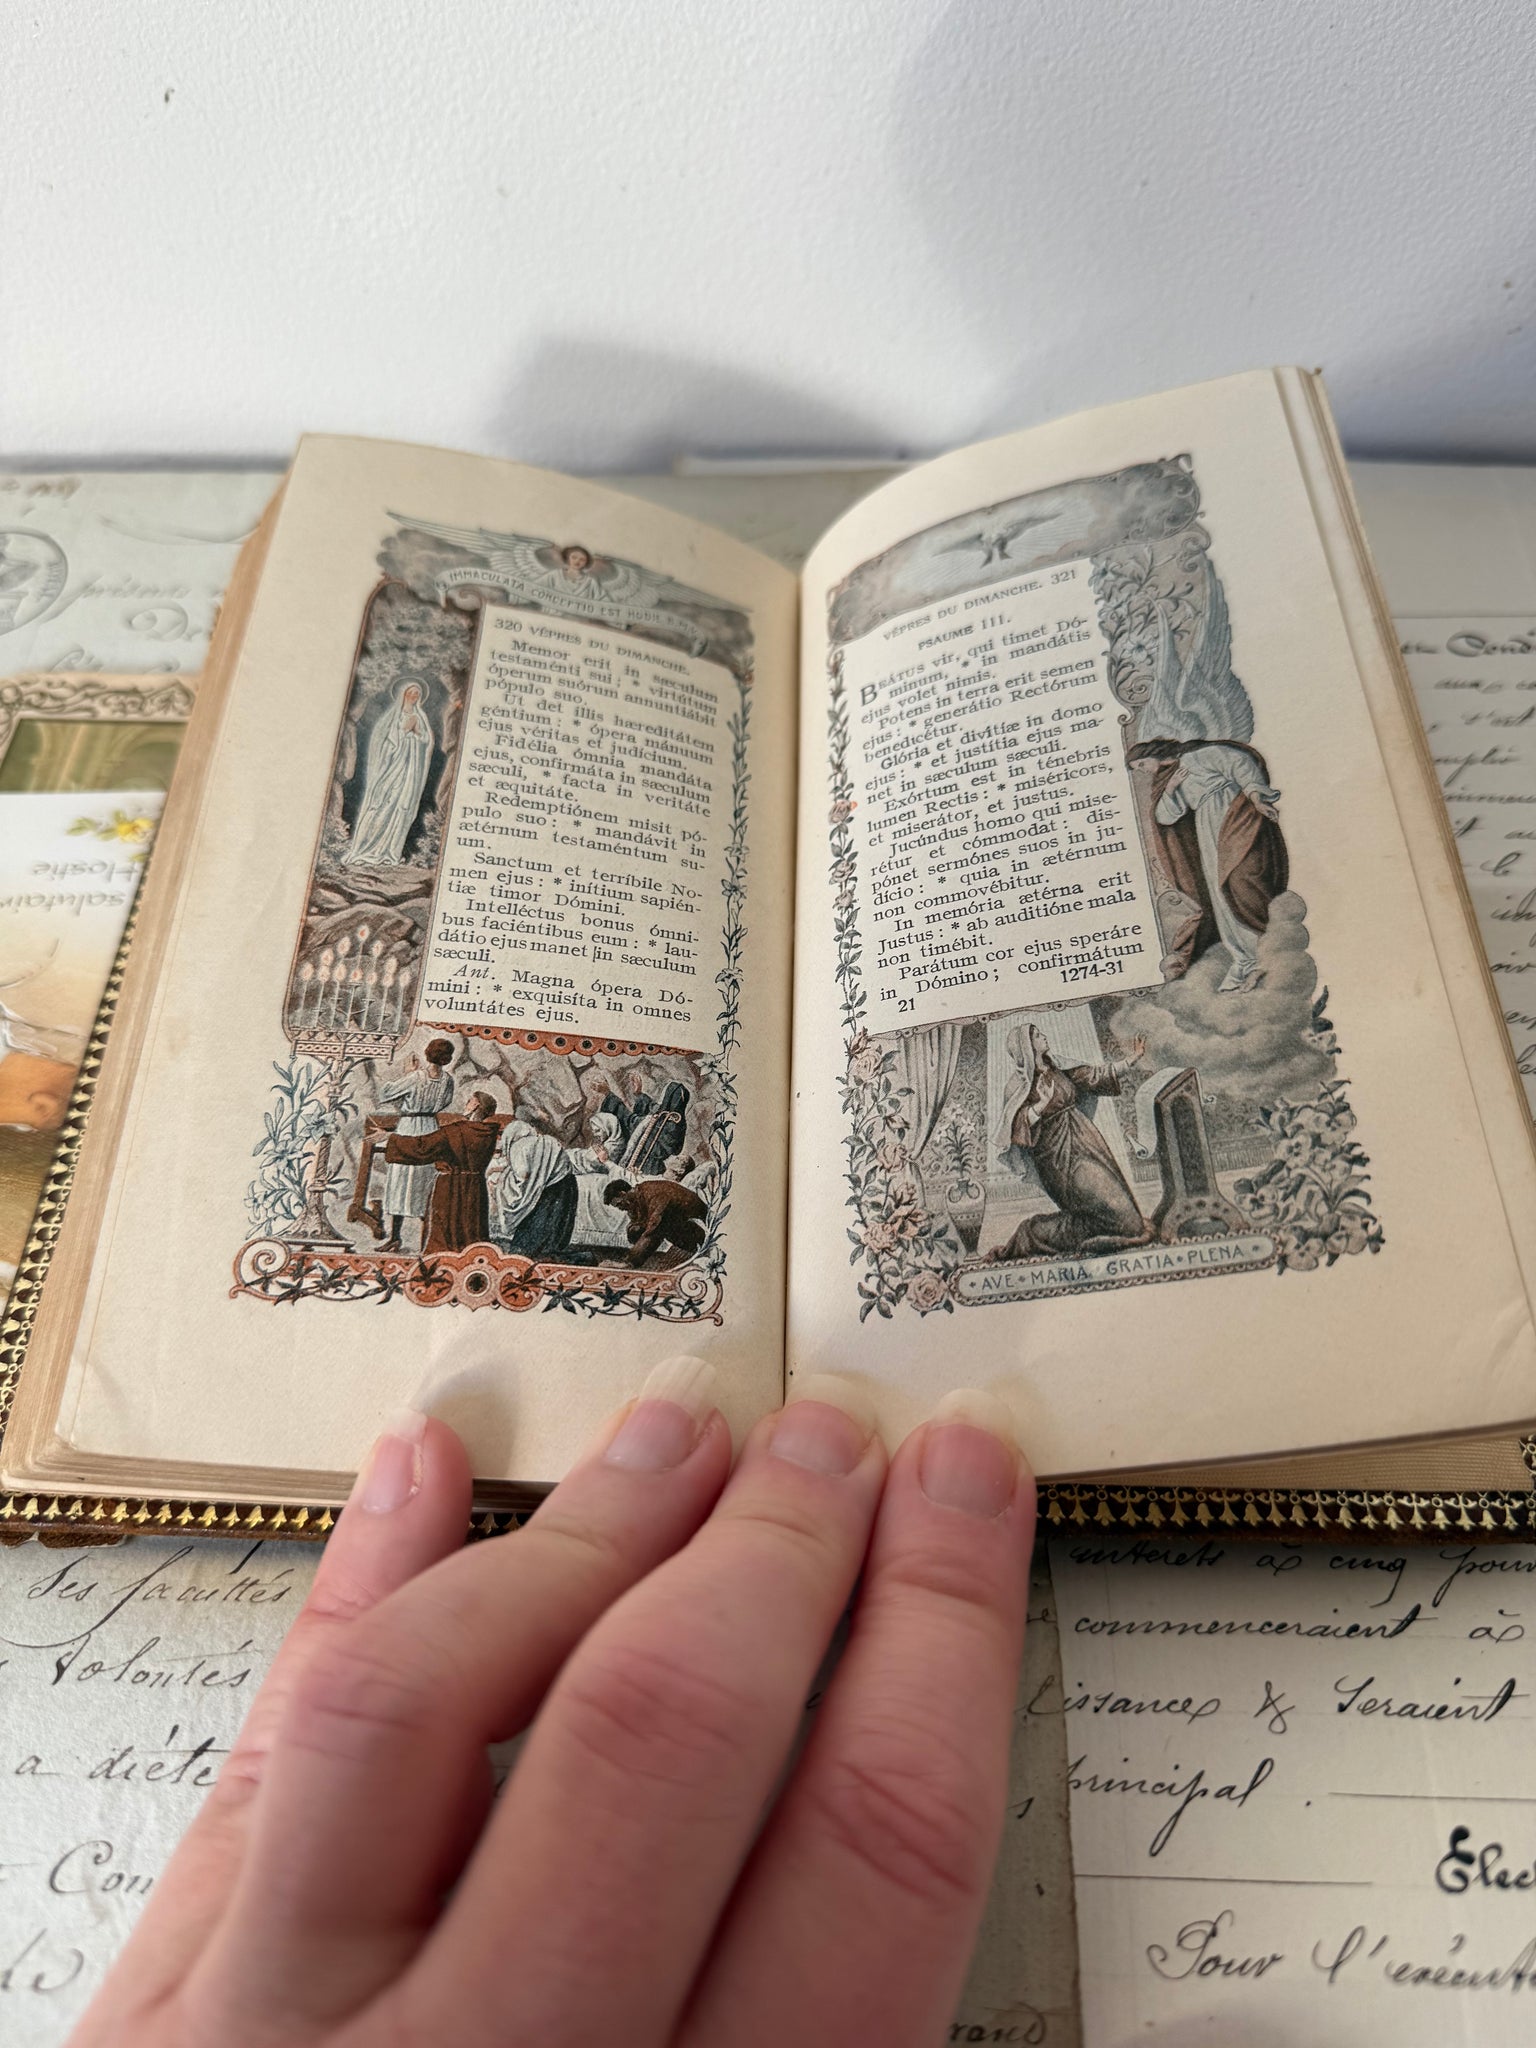 IMMACULATA CONCEPTIO EST HODIE B.M.V.
320 VÊPRES DU DIMANCHE.
Memor erit in sæculum
testaménti sui ; * virtútum
óperum suórum annuntiábit
pópulo suo.
Ut det illis hæreditátem
géntium : * ópera mánuum
ejus véritas et judícium.
Fidélia ómnia mandáta
ejus, confirmáta in sæculum
sæculi, * facta in veritáte
et æquitáte.
Redemptiónem misit pó-
pulo suo : * mandávit in
ætérnum testaméntum su-
um.
Sanctum et terríbile No-
men ejus : * inítium sapién-
tiæ timor Dómini.
Intelléctus bonus ómni-
bus faciéntibus eum : * lau-
dátio ejus manet in sæculum
sæculi.
Ant. Magna ópera Dó-
mini : * exquisíta in omnes
voluntátes ejus.
VÊPRES DU DIMANCHE. 321
PSAUME 111.
BEÁTUS vir, qui timet Dó-
minum, * in mandátis
ejus volet nimis.
Potens in terra erit semen
ejus : * generátio Rectórum
benedicétur.
Glória et divítiæ in domo
ejus : * et justítia ejus ma-
net in sæculum sæculi.
Exórtum est in ténebris
lumen Rectis : * miséricors,
et miserátor, et justus.
Jucúndus homo qui mise-
rétur et cómmodat : dis-
pónet sermónes suos in ju-
dício : * quia in ætérnum
non commovébitur.
In memória ætérna erit
Justus : * ab auditióne mala
non timébit.
Parátum cor ejus speráre
in Dómino ; confirmátum
21 1274-31
AVE MARIA GRATIA PLENA
Hostie
salutair
ses facultés
volontés
a diéte
Con
de
intérêts à cinq pour
commenceraient à
issance & seraient
principal.
Elec
Pour l'exécut